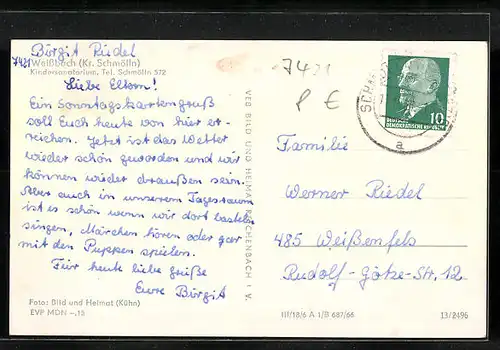 Birgit Riedel
7421
Weißbach (Kr. Schmölln)
Kindersanatorium, Tel. Schmölln 572
Liebe Eltern!
Ein Sonntagskartengruß
soll Euch heute von hier er-
reichen. Jetzt ist das Wetter
wieder schön geworden und wir
können wieder draußen sein.
Aber auch in unserem Tagesraum
ist es schön wenn wir dort basteln
singen, Märchen hören oder gar
mit den Puppen spielen.
Für heute liebe grüße
Eure Birgit
Foto: Bild und Heimat (Kühn)
EVP MDN -.15
VEB BILD UND HEIMAT REICHENBACH I. V.
7421
P €
10
DEUTSCHE
DEMOKRATISCHE REPUBLIK
a
Familie
Werner Riedel
485 Weißenfels
Rudolf-Götze-Str. 12
III/18/6 A 1/B 687/66
13/2496